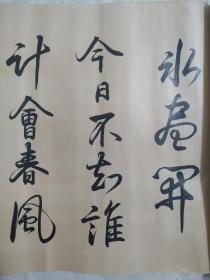 冰盡開
今日不知誰
計會春風